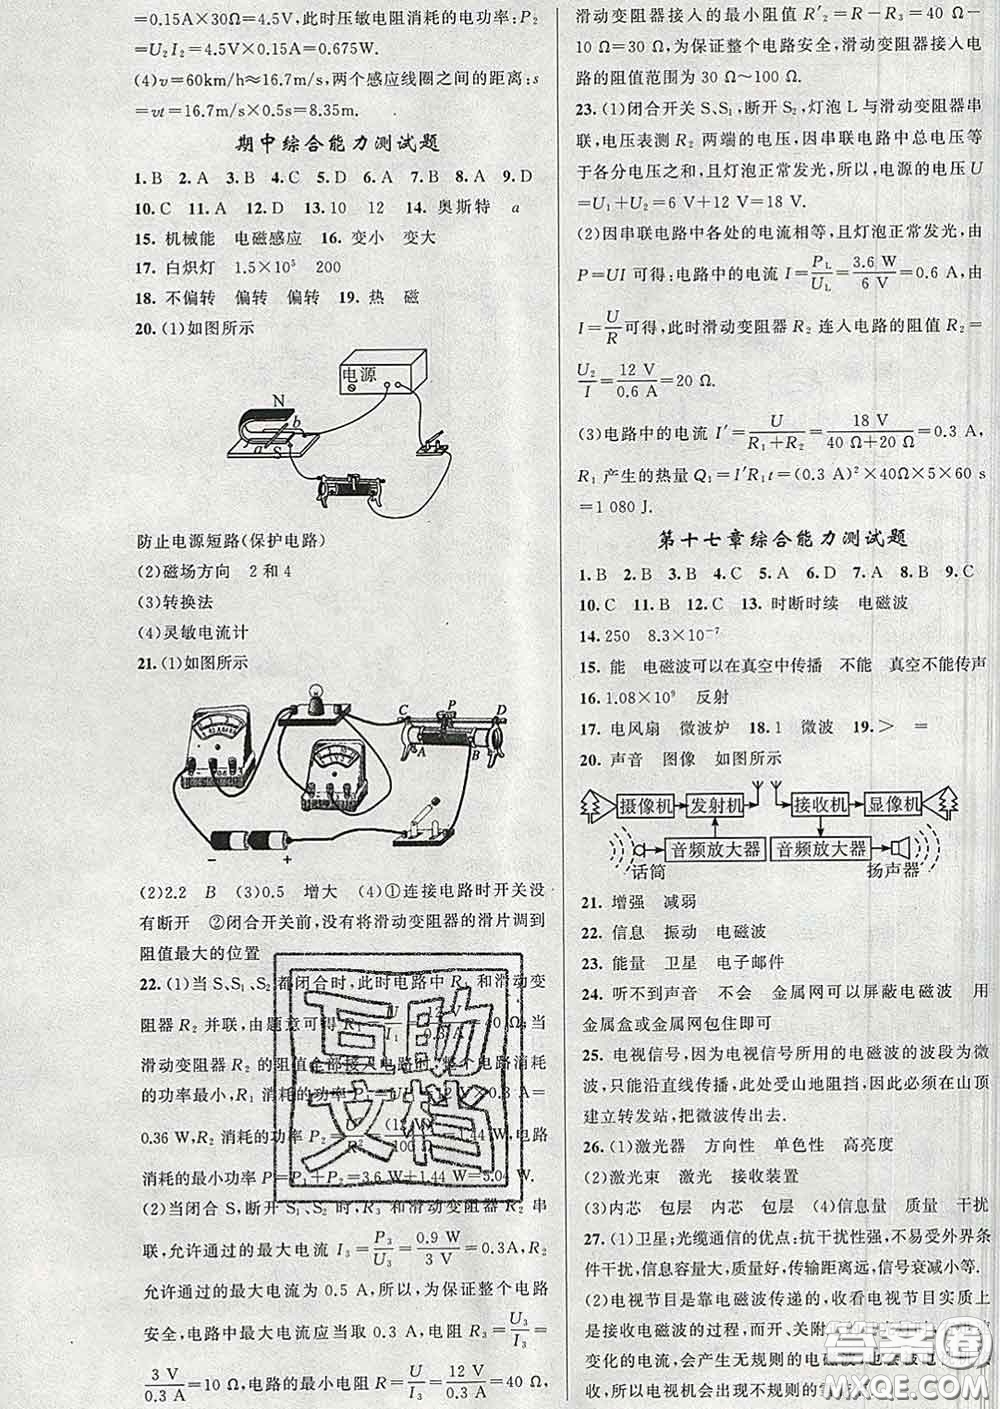 =0.15A×30Ω=4.5V,此时压敏电阻消耗的电功率:P₂
=U₂I₂=4.5V×0.15A=0.675W.
(4)v=60km/h≈16.7m/s,两个感应线圈之间的距离:s
=vt=16.7m/s×0.5s=8.35m.
期中综合能力测试题
1.B 2.A 3.B 4.C 5.D 6.A 7.B 8.A 9.D
10.C 11.A 12.D 13.10 12 14.奥斯特 a
15.机械能 电磁感应 16.变小 变大
17.白炽灯 1.5×10⁵ 200
18.不偏转 偏转 偏转 19.热 磁
20.(1)如图所示
电源
N
b
a S
防止电源短路(保护电路)
(2)磁场方向 2和4
(3)转换法
(4)灵敏电流计
21.(1)如图所示
C P D
A B
− +
(2)2.2 B (3)0.5 增大 (4)①连接电路时开关没
有断开 ②闭合开关前,没有将滑动变阻器的滑片调到
阻值最大的位置
22.(1)当S、S₁、S₂都闭合时,此时电路中R₁和滑动变
阻器R₂并联,由题意可得R₁= /I₁= V/0.3A=40Ω;当
滑动变阻器R₂的阻值全部接入电路时,整个电路消耗
的功率最小,R₁消耗的功率P₁=U
0.36 W,R₂消耗的功率P₂=U²/R²=(12V)²/100Ω=1.44W,电路
消耗的最小功率P=P₁+P₂=3.6 W+1.44 W=5.04 W.
(2)当闭合S,断开S₁、S₂时,R₃和滑动变阻器R₂串
联,允许通过的最大电流I₃=P₃/U₃=0.9W/3 V=0.3A,R₂
允许通过的最大电流为0.5 A,所以,为保证整个电路
安全,电路中最大电流应当取0.3 A,电阻R₃=U₃/I₃=
3 V/0.3 A=10 Ω,电路的最小电阻R=U/I₃=12 V/0.3 A=40 Ω,
滑动变阻器接入的最小阻值R′₂=R−R₃=40 Ω−
10 Ω=30 Ω,为保证整个电路安全,滑动变阻器接入电
路的阻值范围为30 Ω～100 Ω.
23.(1)闭合开关S、S₁,断开S₂,灯泡L与滑动变阻器串
联,电压表测R₂两端的电压,因串联电路中总电压等
于各分电压之和,且灯泡正常发光,所以,电源的电压U
=U₁+U₂=6 V+12 V=18 V.
(2)因串联电路中各处的电流相等,且灯泡正常发光,由
P=UI可得:电路中的电流I=P_L/U_L=3.6 W/6 V=0.6 A,由
I=U/R可得,此时滑动变阻器R₂连入电路的阻值R₂=
U₂/I=12 V/0.6 A=20 Ω.
(3)电路中的电流I′=U/(R₁+R₂)=18 V/(40 Ω+20 Ω)=0.3 A,
R₁产生的热量Q₁=I′R₁t=(0.3 A)²×40Ω×5×60 s
=1 080 J.
第十七章综合能力测试题
1.B 2.B 3.B 4.C 5.A 6.D 7.A 8.B 9.C
10.C 11.B 12.C 13.时断时续 电磁波
14.250 8.3×10⁻⁷
15.能 电磁波可以在真空中传播 不能 真空不能传声
16.1.08×10⁹ 反射
17.电风扇 微波炉 18.1 微波 19.> =
20.声音 图像 如图所示
摄像机 发射机 接收机 显像机
音频放大器 音频放大器
话筒 扬声器
21.增强 减弱
22.信息 振动 电磁波
23.能量 卫星 电子邮件
24.听不到声音 不会 金属网可以屏蔽电磁波 用
金属盒或金属网包住即可
25.电视信号,因为电视信号所用的电磁波的波段为微
波,只能沿直线传播,此处受山地阻挡,因此必须在山顶
建立转发站,把微波传出去.
26.(1)激光器 方向性 单色性 高亮度
(2)激光束 激光 接收装置
(3)内芯 包层 内芯 包层 (4)信息量 质量 干扰
27.(1)卫星;光缆通信的优点:抗干扰性强,不易受外界条
件干扰,信息容量大,传输距离远,信号衰减小等.
(2)电视节目是靠电磁波传递的,收看电视节目实质上
是接收电磁波的过程,而开、关附
变化的电流,会产生无规则的电磁波,也会被电视机接
收,所以电视机会出现不规则的雪花
互助文档
答案圈
MXQE.COM